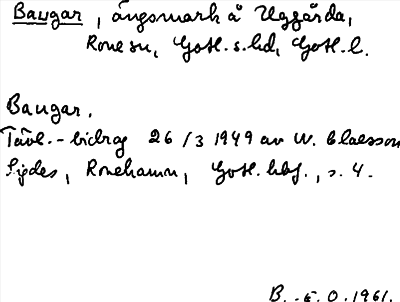 Baugar, ängsmark å Uggårda,
Rone sn, Gotl. s. hd, Gotl. l.
Baugar.
Tävl.-bidrag 26/3 1949 av W. Claesson
Sigdes, Ronehamn, Gotl. hbf., s. 4.
B. E. O. 1961.